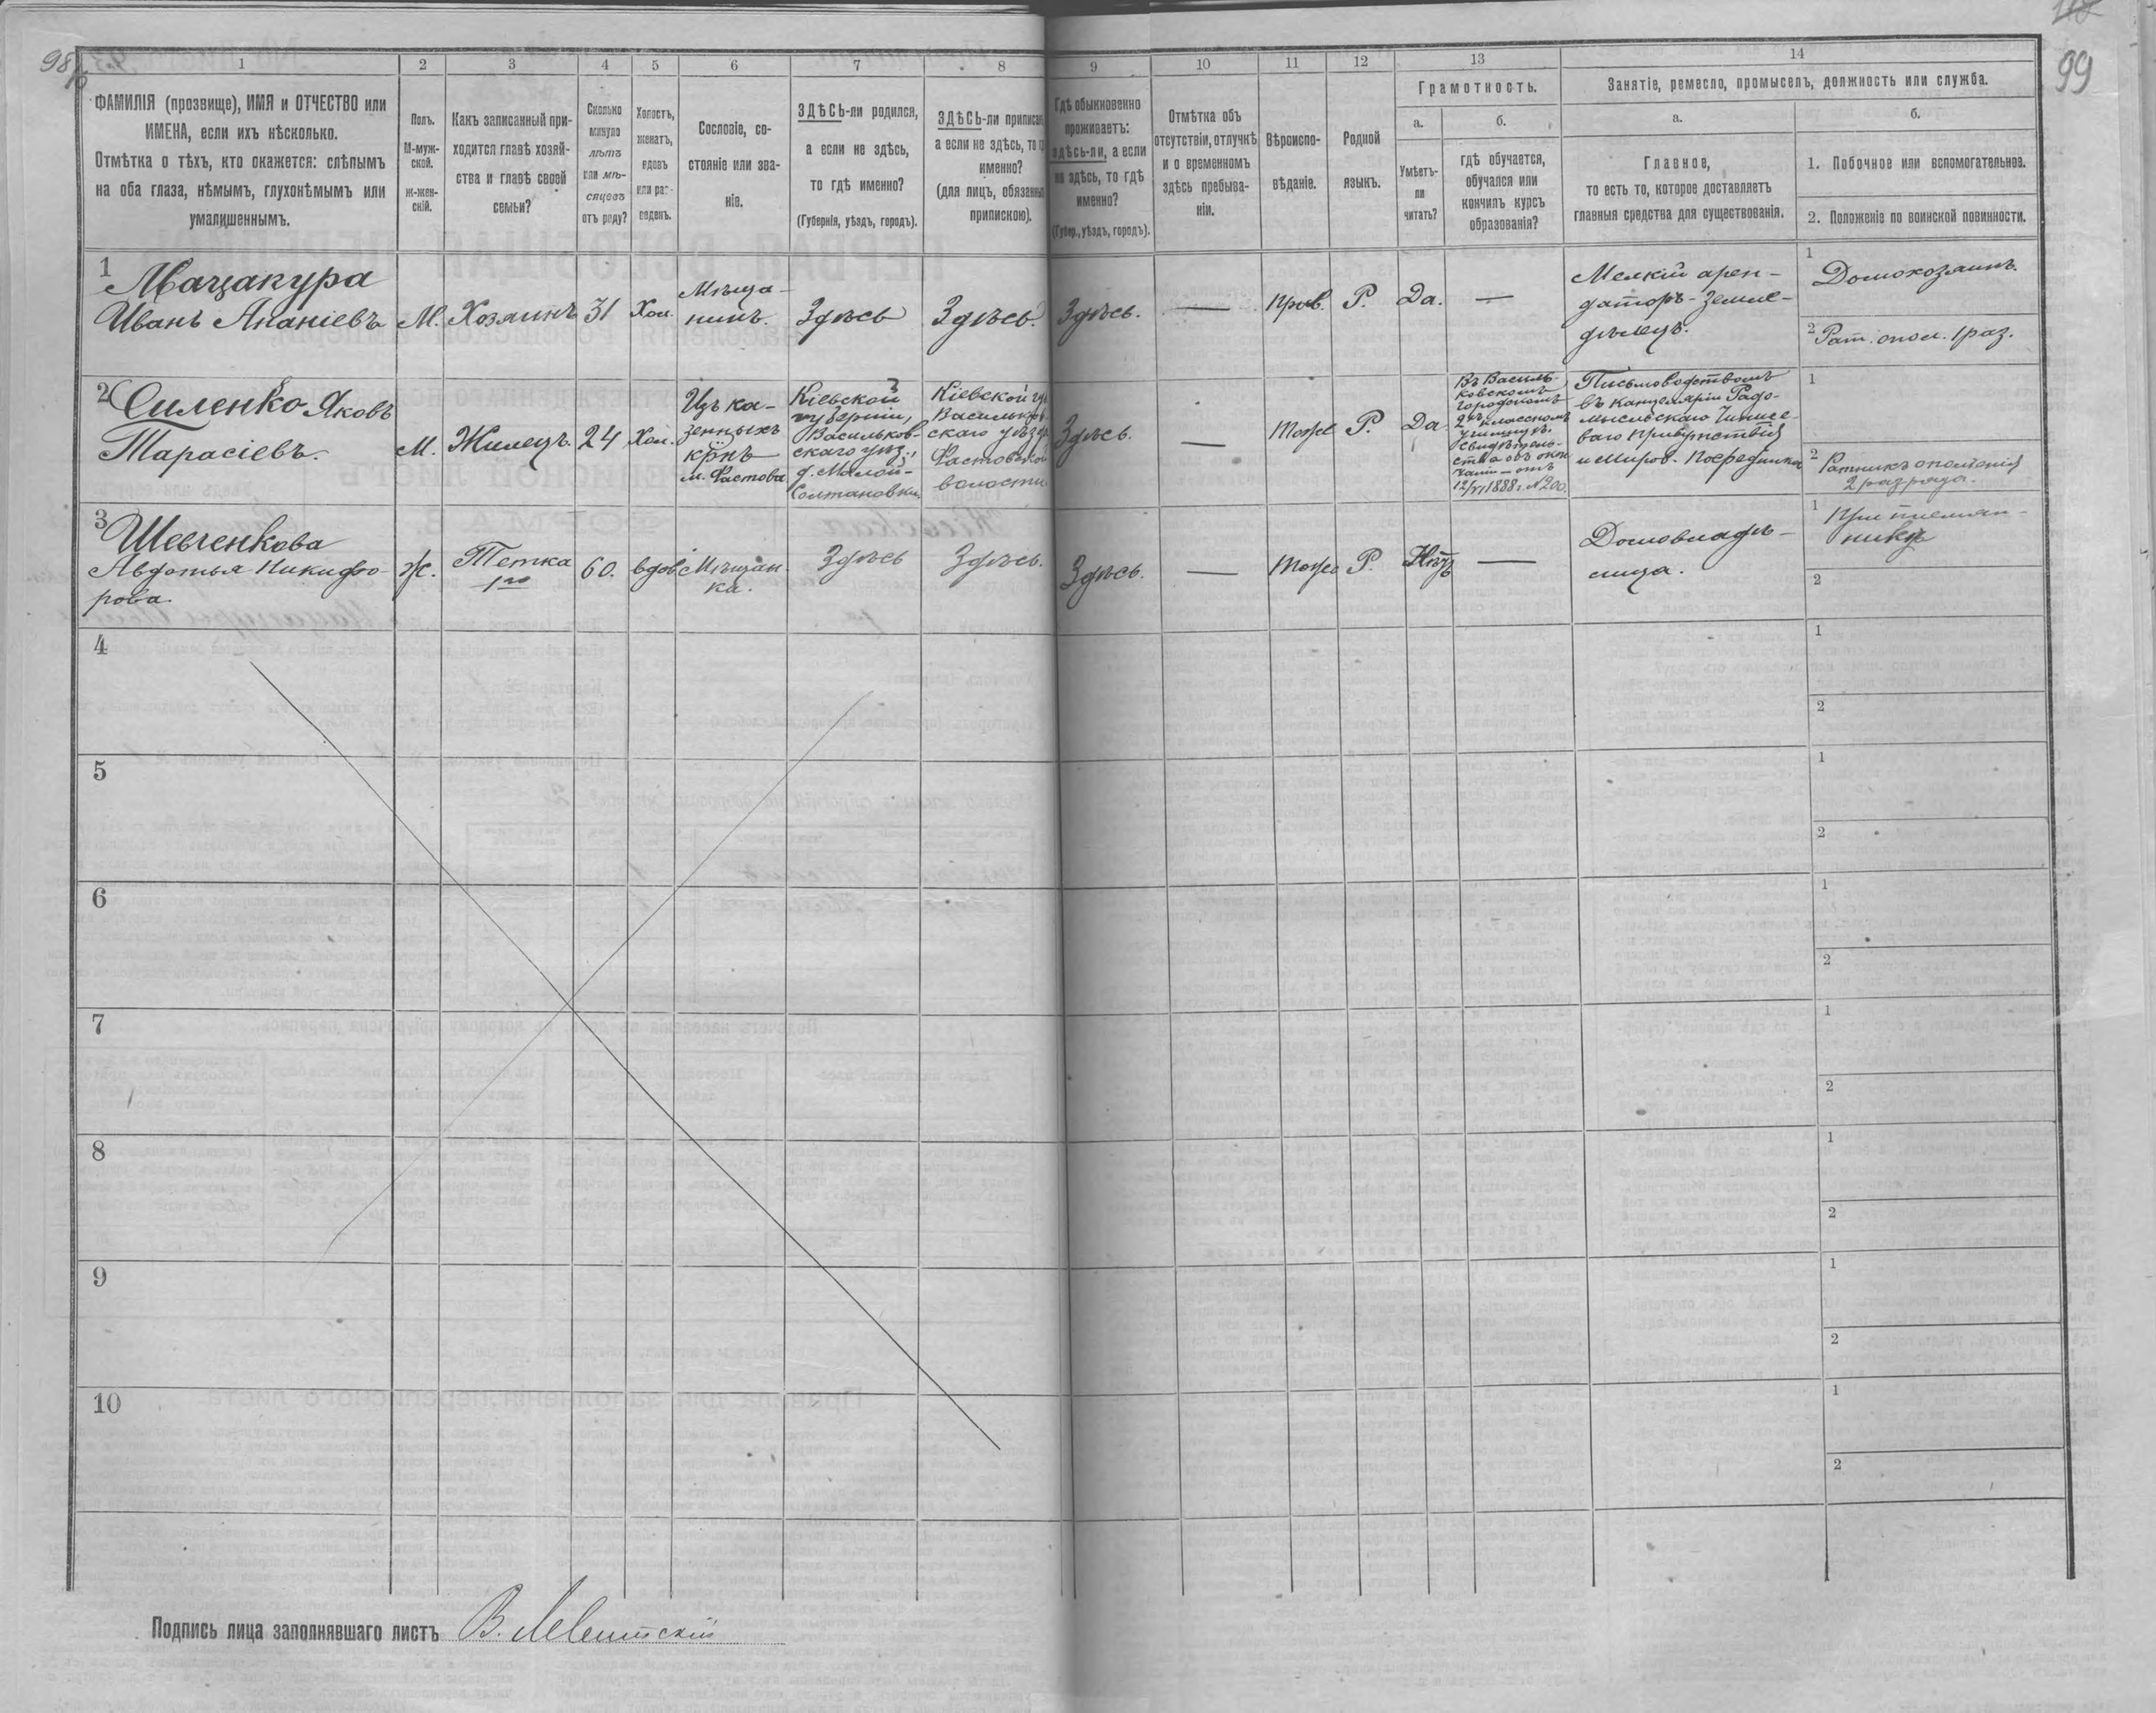 98
99
1 2 3 4 5 6 7 8 9 10 11 12 13 14
ФАМИЛІЯ (прозвище), ИМЯ и ОТЧЕСТВО или
ИМЕНА, если ихъ нѣсколько.
Отмѣтка о тѣхъ, кто окажется: слѣпымъ
на оба глаза, нѣмымъ, глухонѣмымъ или
умалишеннымъ.
Полъ.
М-муж-
ской.
Ж-жен-
скій.
Какъ записанный при-
ходится главѣ хозяй-
ства и главѣ своей
семьи?
Сколько
минуло
лѣтъ
или мѣ-
сяцевъ
отъ роду?
Холостъ,
женатъ,
вдовъ
или раз-
веденъ.
Сословіе, со-
стояніе или зва-
ніе.
ЗДѢСЬ-ли родился,
а если не здѣсь,
то гдѣ именно?
(Губернія, уѣздъ, городъ).
ЗДѢСЬ-ли приписан
а если не здѣсь, то
именно?
(для лицъ, обязанны
припискою).
Гдѣ обыкновенно
проживаетъ:
здѣсь-ли, а если
не здѣсь, то гдѣ
именно?
(Губер., уѣздъ, городъ).
Отмѣтка объ
отсутствіи, отлучкѣ
и о временномъ
здѣсь пребыва-
ніи.
Вѣроиспо-
вѣданіе.
Родной
языкъ.
Грамотность.
а.
Умѣетъ-
ли
читать?
б.
гдѣ обучается,
обучался или
кончилъ курсъ
образованія?
Занятіе, ремесло, промыселъ, должность или служба.
а.
Главное,
то есть то, которое доставляетъ
главныя средства для существованія.
б.
1. Побочное или вспомогательное.
2. Положеніе по воинской повинности.
1
Мацакура
Иванъ Ананіевъ
М.
Хозяинъ
31
Хол.
Мѣща-
нинъ.
Здѣсь
Здѣсь.
Здѣсь.
—
Прав.
Р.
Да.
—
Мелкій арен-
даторъ-земле-
дѣлецъ.
1
Домохозяинъ.
2 Рат. опол. 1 раз.
2 Силенко Яковъ
Тарасіевъ.
М.
Жилецъ.
24
Хол.
Изъ ка-
зенныхъ
крнъ
м. Фастова
Кіевской
губерніи,
Васильков-
скаго уѣз.,
д. Малой-
Солтановки
Кіевской гу
Васильков-
скаго уѣзд
Фастовской
волости
Здѣсь.
—
Тоже
Р.
Да.
Въ Василь-
ковскомъ
городскомъ
2хъ классномъ
училищѣ.
свидѣтель-
ство объ окон
чаніи — отъ
12/VI 1888 г. №200.
Письмоводствомъ
въ канцеляріи Радо-
мысльскаго Чинше-
ваго Присутствія
и Миров. Посредника
1
2
Ратникъ ополченія
2 разряда.
3
Шевченкова
Авдотья Никифо-
рова.
Ж.
Тетка
1го
60.
вдов.
Мѣщан-
ка.
Здѣсь
Здѣсь.
Здѣсь.
—
Тоже
Р.
Нѣтъ
—
Домовладѣ-
лица.
1
При племян-
никѣ
2
4
1
2
5
1
2
6
1
2
7
1
2
8
1
2
9
1
2
10
1
2
Подпись лица заполнявшаго листъ В. Левитскій